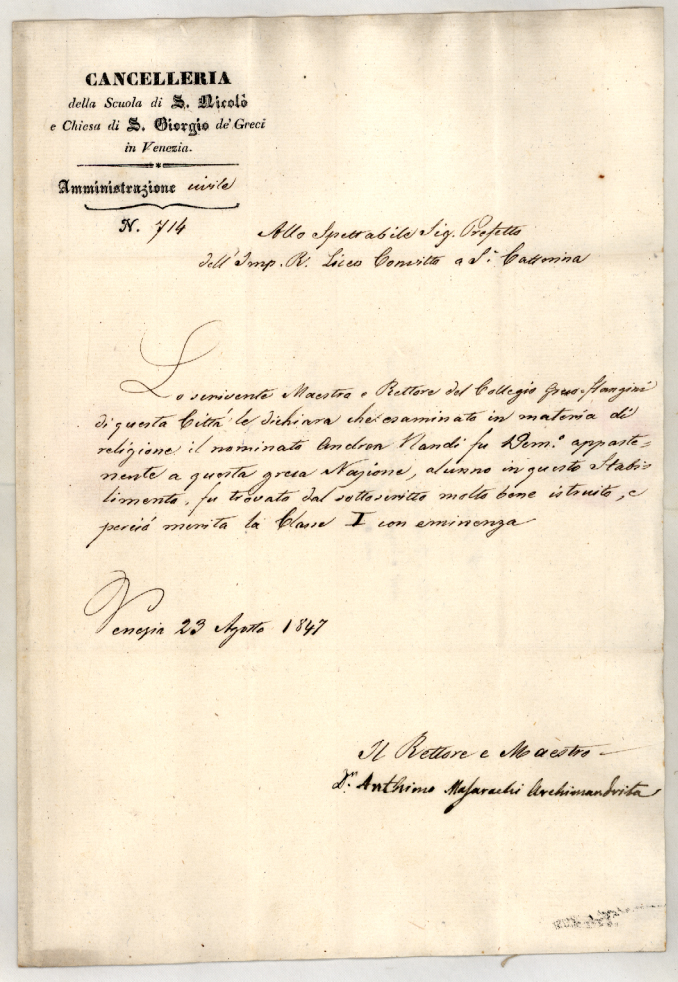 CANCELLERIA
della Scuola di S. Nicolò
e Chiesa di S. Giorgio de' Greci
in Venezia.
Amministrazione civile
N. 714
Allo Spettabile Sig. Prefetto
dell' Imp. R. Liceo Convitto a S.ª Catterina
Lo scrivente Maestro e Rettore del Collegio Greco-Flangini
di questa Città le dichiara che esaminato in materia di
religione il nominato Andrea Nandi fu Dem.º apparte-
nente a questa greca Nazione, alunno in questo Stabi-
limento, fu trovato dal sottoscritto molto bene istruito, e
perciò merita la Classe I con eminenza
Venezia 23 Agosto 1847
Il Rettore e Maestro
D.r Anthimo Masarachi Archimandrita